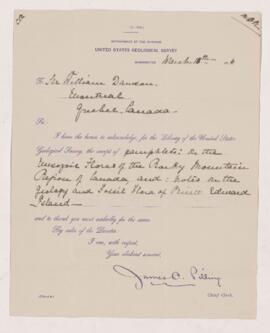 DEPARTMENT OF THE INTERIOR
UNITED STATES GEOLOGICAL SURVEY
WASHINGTON March 18th
To Sir William Dawson
Montreal
Quebec, Canada
Sir:
I have the honor to acknowledge, for the Library of the United States
Geological Survey, the receipt of pamphlets: On the
Mesozoic Floras of the Rocky Mountain
Region of Canada, and: Notes on the
Geology and Fossil Flora of Prince Edward
Island
and to thank you most cordially for the same.
By order of the Director.
I am, with respect,
Your obedient servant,
James C. Pilling
Chief Clerk.